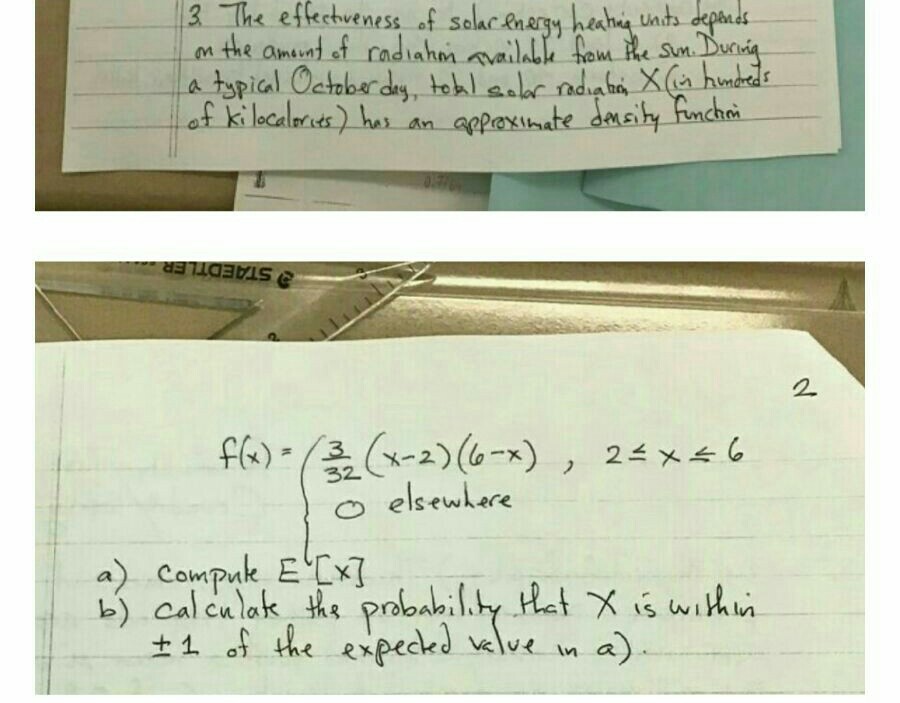 3. The effectiveness of solar energy heating units depends
on the amount of radiation available from the sun. During
a typical October day, total solar radiation X (in hundreds
of kilocalories) has an approximate density function
STAEDTLER
2
f(x) = { 3/32 (x-2)(6-x) , 2 ≤ x ≤ 6
0 elsewhere
a) compute E[x]
b) calculate the probability that X is within
±1 of the expected value in a).